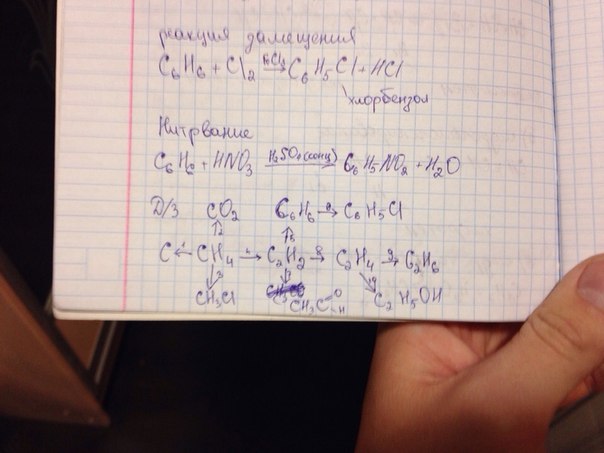 реакция замещения
C6H6 + Cl2 → C6H5Cl + HCl
хлорбензол
Нитрвание
C6H6 + HNO3 H2SO4(конц)→ C6H5NO2 + H2O
Д/З CO2 C6H6 → C6H5Cl
↑2 ↑5
C ← CH4 → C2H2 → C2H4 → C2H6
↓3 ↓ ↘
CH3Cl CH3C=O-H C2H5OH